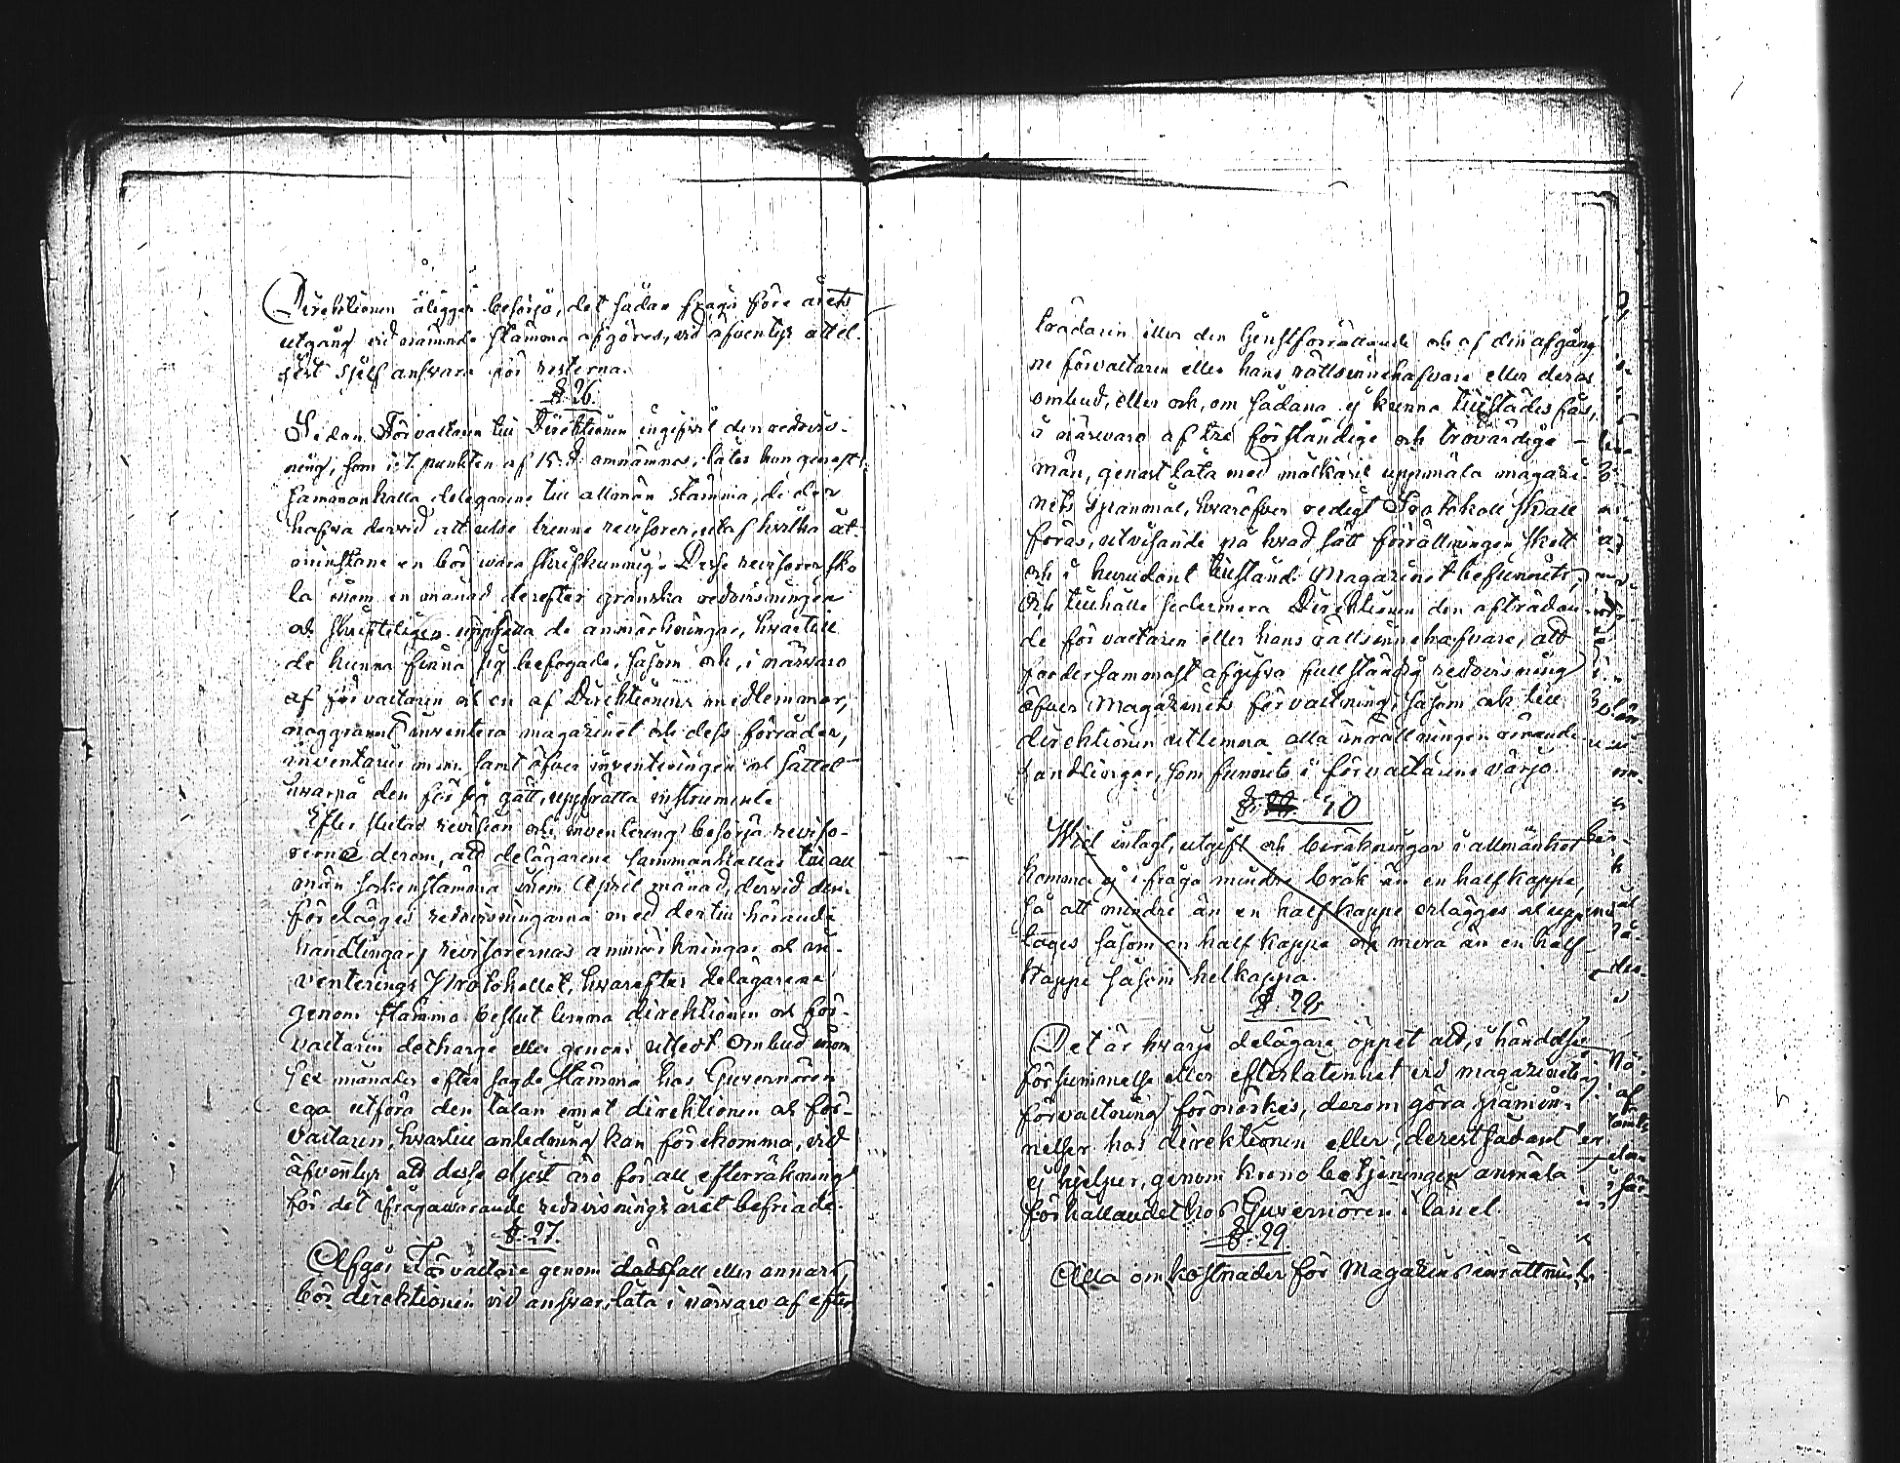 Direktionen åligger besörja, det sådan fråga före årets
utgång vid nämnde stämma afgöres, vid äfventyr att el-
jest sjelf ansvara för resterna.
§ 26.
Sedan Förvaltaren till Direktionen ingifvit den redovis-
ning, som i 7. punkten af 15 § omnämnes, låter hon genast
sammankalla delegarene till allmän stämma, de der
hafva dervid att utse trenne revisorer, utaf hvilka åt-
minstone en bör vara skrifkunnig. Desse revisorer sko
la inom en månad derefter granska redovisningen
och skrifteligen uppsätta de anmärkningar, hvartill
de kunna finna sig befogade, såsom ock, i närvaro
af förvaltaren och en af Direktionens medlemmar,
noggrannt inventera magazinet och dess förråder,
inventarii m.m. samt öfver inventeringen och sättet
hvarpå den försiggått, upprätta instrument.
Efter slutad revision och inventering besörja reviso-
rerne derom, att delägarene sammankallas till all
män sockenstämma inom April månad, dervid dem
föreläggas redovisningarna med dertill hörande
handlingar, revisorernas anmärkningar och in-
venterings Protokollet, hvarefter delägarene
genom stämmobeslut lemna direktionen och för-
valtaren decharge eller genom utsedt ombud inom
sex månader efter sagde stämma hos Guvernören
ega utföra den talan emot direktionen och för-
valtaren, hvartill anledning kan förekomma, vid
äfventyr att desse eljest äro för all efterräkning
för det ifrågavarande redovisnings året befriade.
§. 27.
Afgår Förvaltare genom dödsfall eller annars
bör direktionen vid ansvar, låta i närvaro af efter
trädaren eller den tjenstförrättande och af den afgång
ne förvaltaren eller hans rättsinnehafvare eller deras
ombud, eller ock, om sådana ej kunna tillstädes fås,
i närvaro af tre förståndige och trovärdige
män, genast låta med målkäril uppmäla magazi-
nets spanmål, hvaröfver redigt Protokoll skall
föras, utvisande på hvad sätt förrättningen skett
och i hurudant tillstånd Magazinet befunnits,
och tillhålle sedermera Direktionen den afträdan-
de förvaltaren eller hans rättsinnehafvare, att
fordersammast afgifva fullständig redovisning
öfver Magazinets förvaltning, såsom ock till
direktionen utlemna alla inrättningen rörande
handlingar, som funnits i förvaltarens värjo.
§. 40
Wid intagt, utgift och beräkningar i allmänhet
komma ej i fråga mindre bråk än en half kappe,
så att mindre än en half kappe erlägges och upp
tages såsom en half kappe och mera än en half
kappe såsom hel kappa.
§. 28
Det är hvarje delägare öppet att, i händelse
försummelse eller efterlåtenhet vid magazinets
förvaltning förmärkes, derom göra påmin-
nelser hos direktionen eller, derest sådant
ej hjelper, genom kronobetjeningen anmäla
förhållandet hos Guvernören i länet.
§. 29.
Alla omkostnader för Magazins inrättning